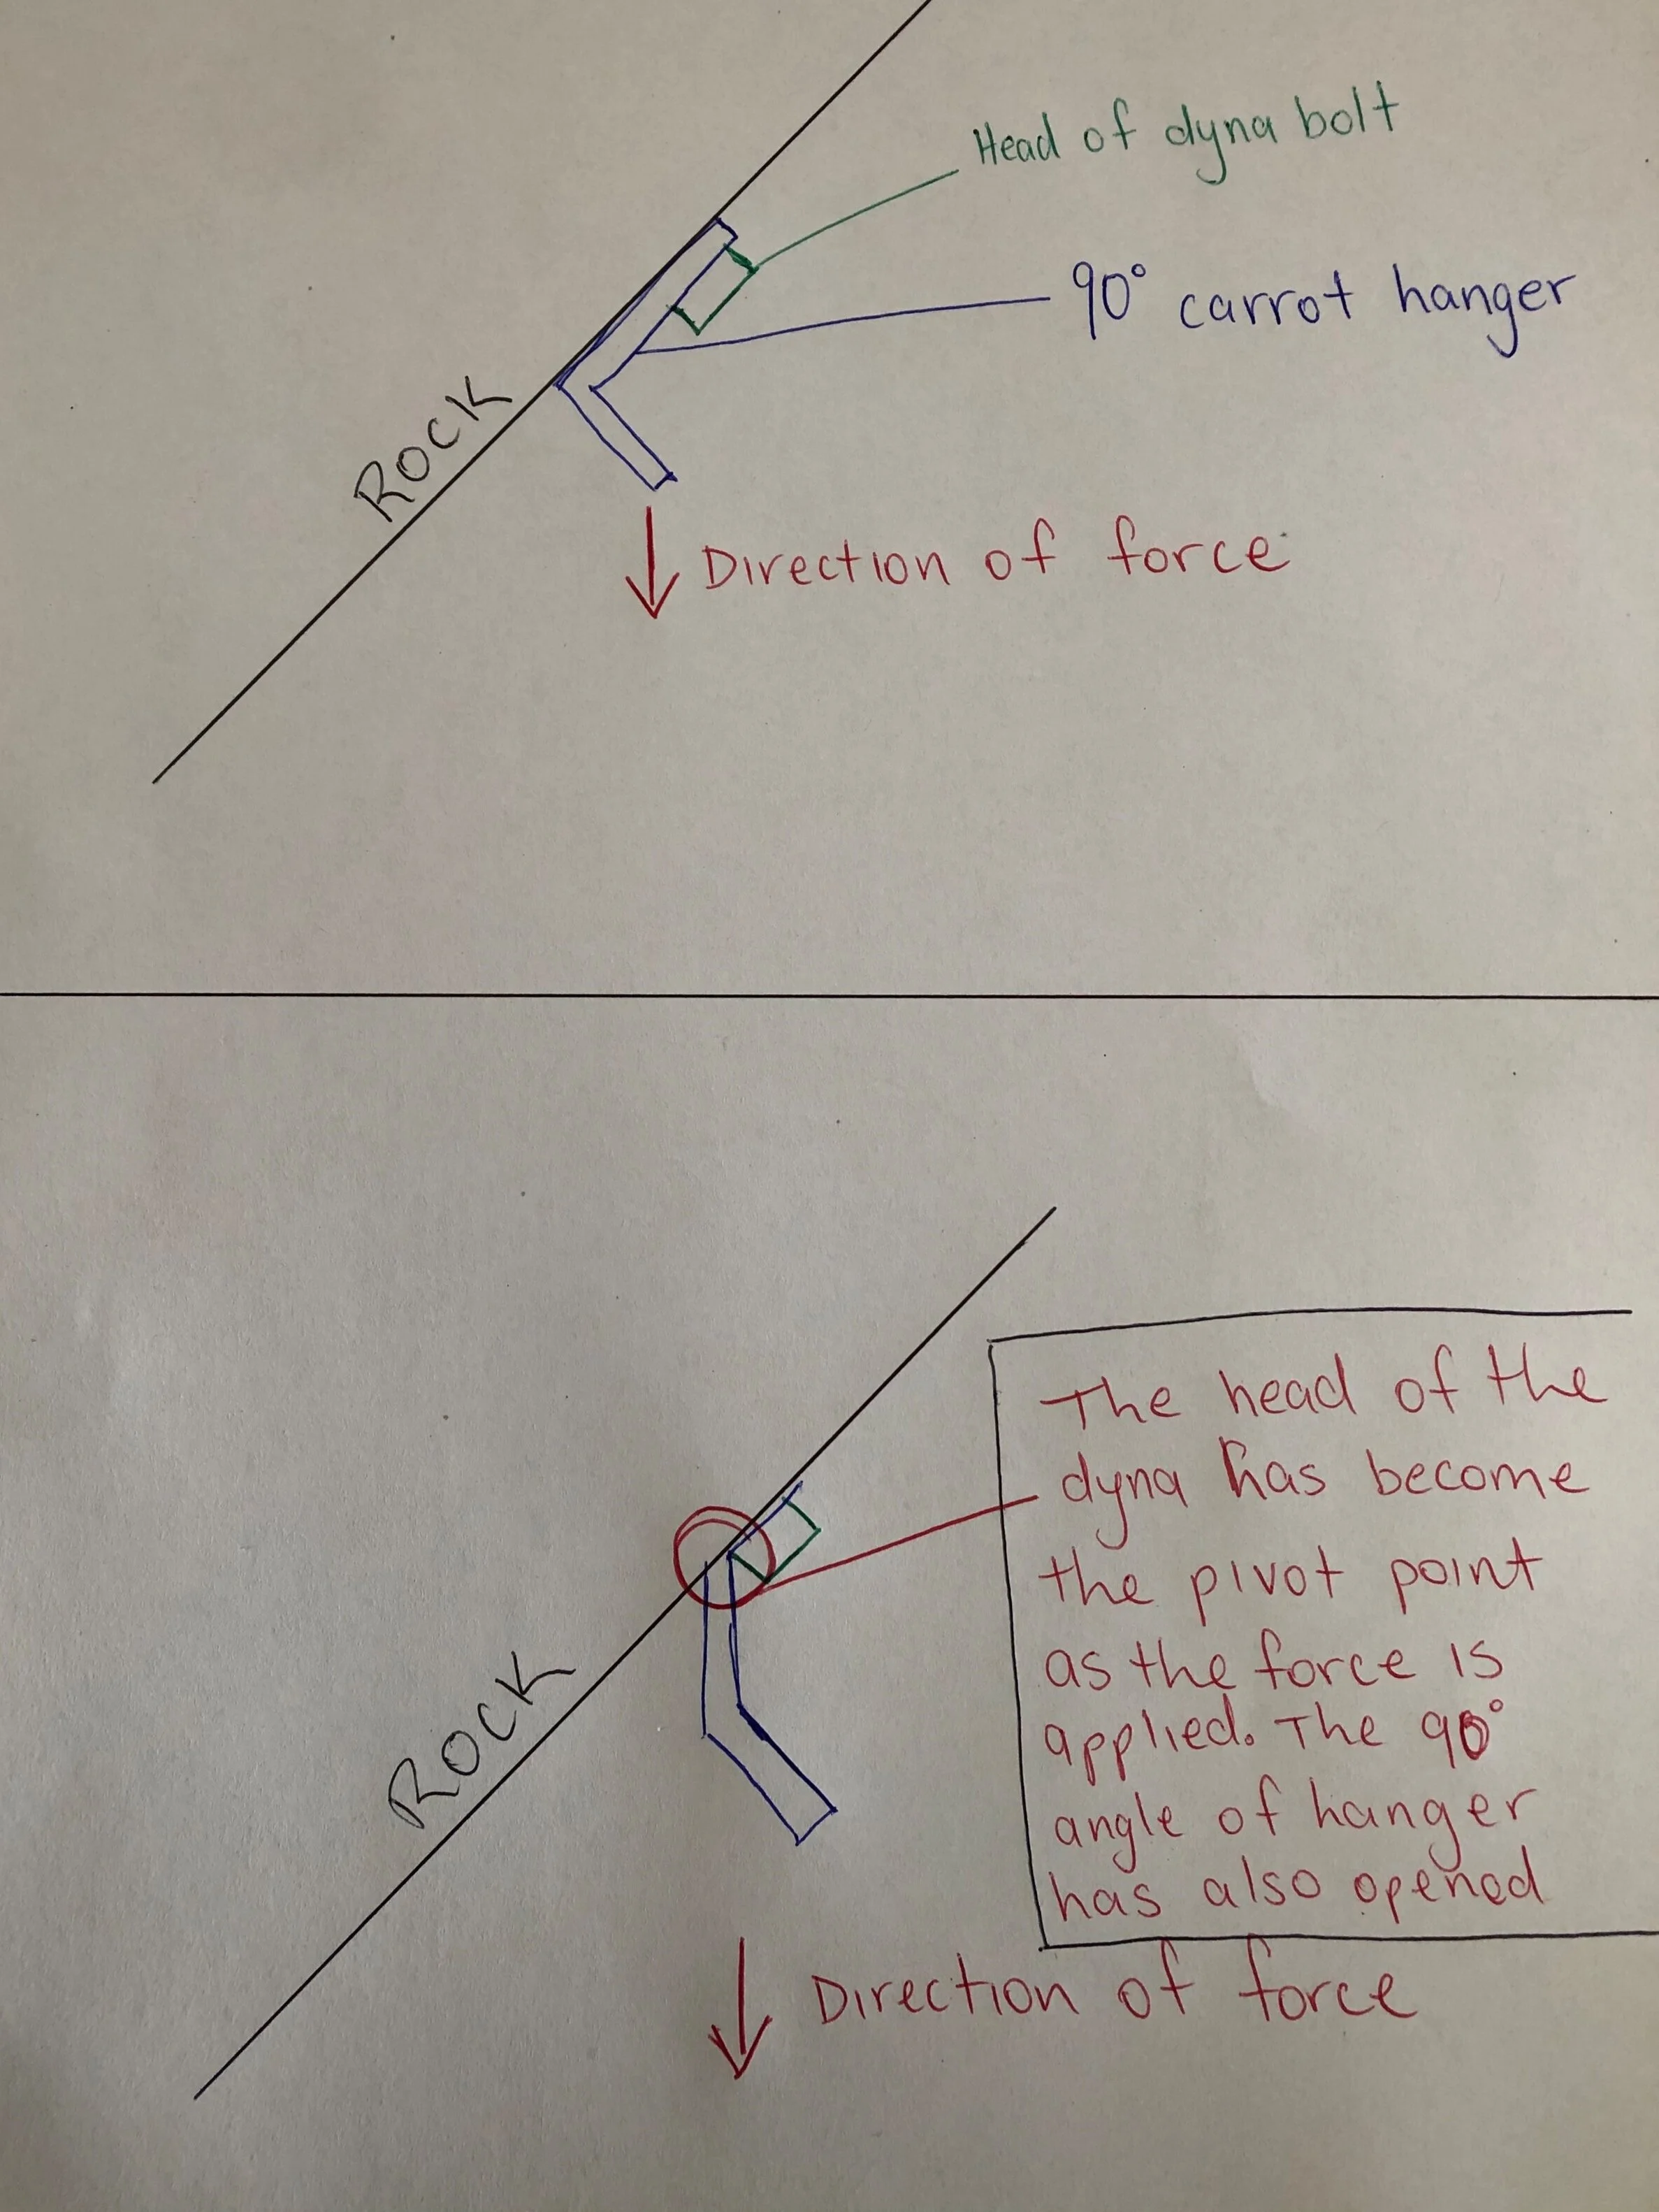 Head of dyna bolt
90° carrot hanger
ROCK
Direction of force
The head of the
dyna has become
the pivot point
as the force is
applied. The 90°
angle of hanger
has also opened
ROCK
Direction of force